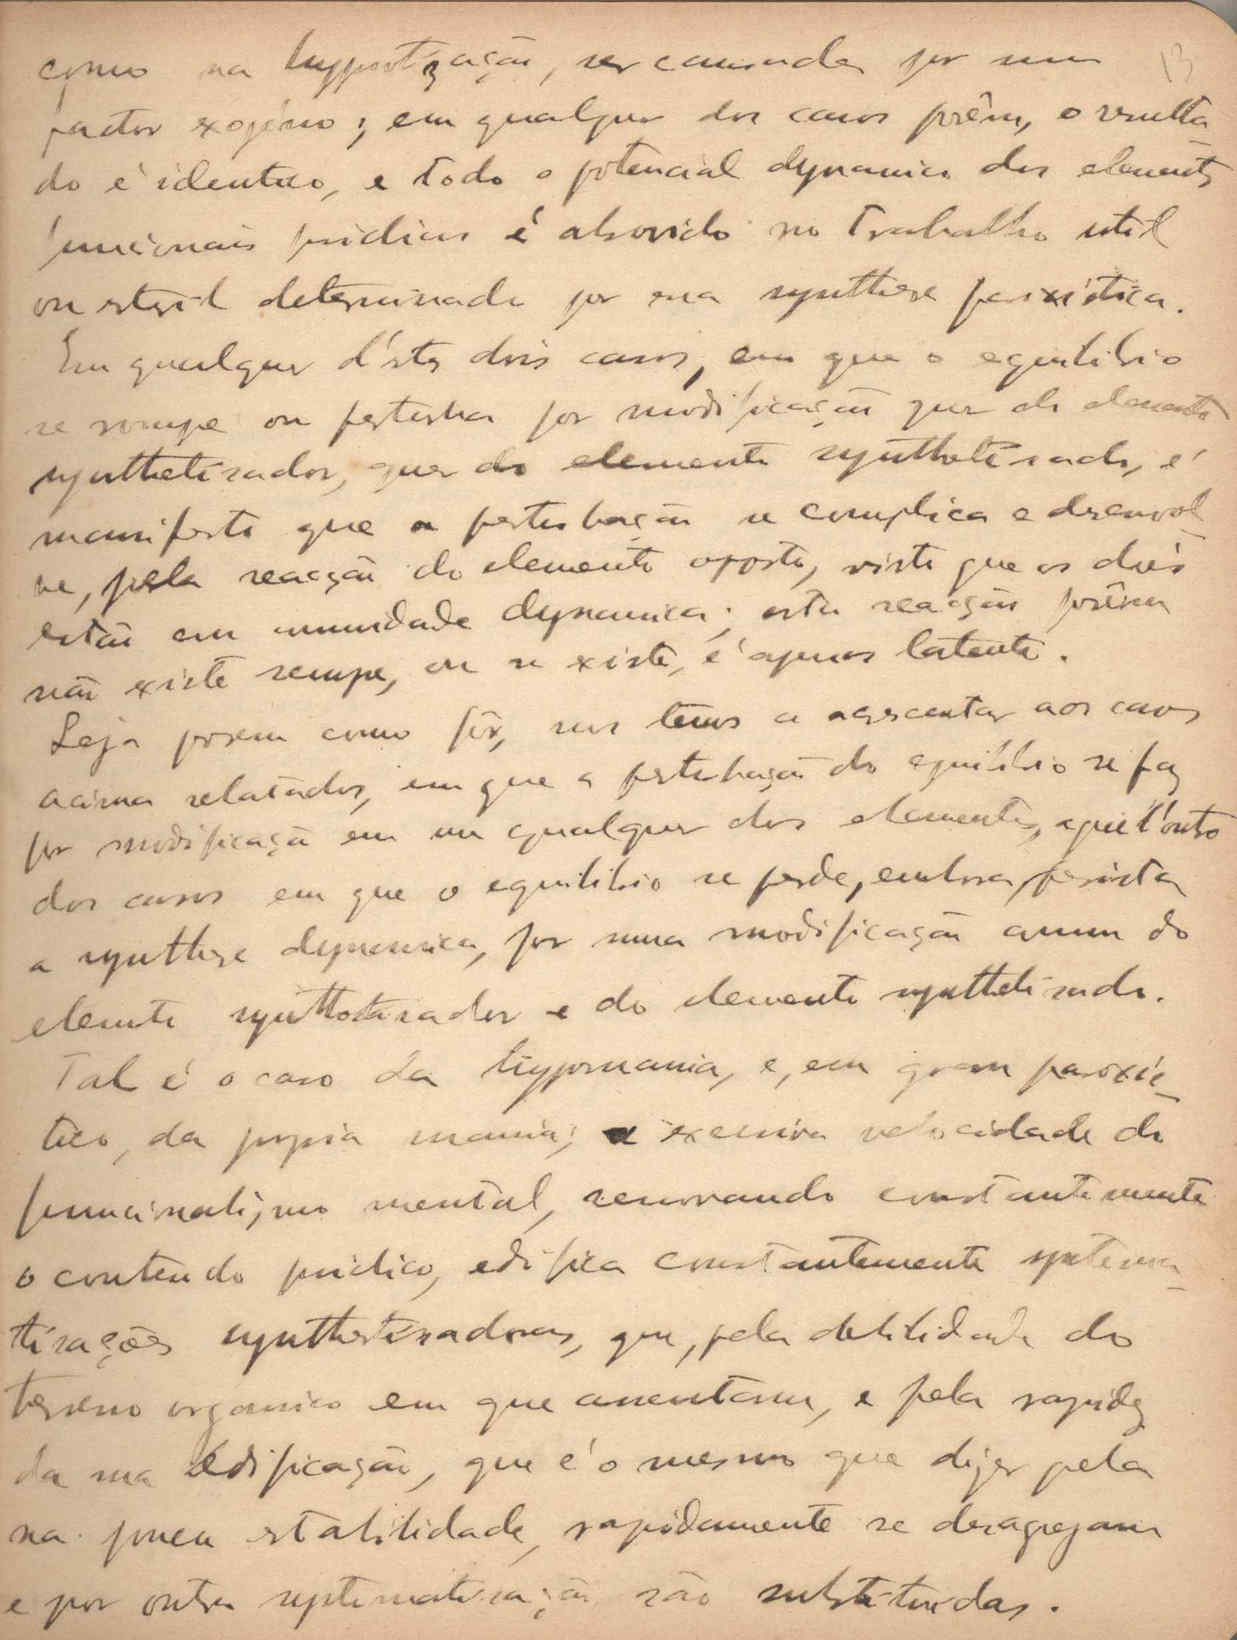 13
como na hypnotização, ser causada por um
factor exogéno; em qualquer dos casos porêm, o resulta
do é identico, e todo o potencial dynamico dos elementos
funcionais psidicos é absorvido no trabalho util
ou esteril determinado por essa synthese paroxistica.
Em qualquer d'estes dois casos, em que o equilibrio
se rompe ou perturba por modificação quer do elemento
synthetisador, quer do elemento synthetisado, é
manifesto que a perturbação se complica e desenvol-
ve, pela reacção do elemento opposto, visto que os dois
estão em unidade dynamica; esta reacção porêm
não existe sempre, ou se existe, é apenas latente.
Seja porem como fôr, nos temos a acrescentar aos casos
acima relatados, em que a perturbação do equilibrio se faz
por modificação em um qualquer dos elementos, aquel'outro
dos casos em que o equilibrio se perde, embora persista
a synthese dynamica, por uma modificação comum do
elemento synthetisador e do elemento synthetisado.
Tal é o caso da hypomania, e, em grau paroxis-
tico, da propria mania; a excessiva velocidade do
funcionalismo mental, renovando constantemente
o conteudo psidico, edifica constantemente systema-
tisações synthetisadoras, que, pela debilidade do
terreno organico em que assentam, e pela rapidez
da sua edificação, que é o mesmo que dizer pela
sua pouca estabilidade, rapidamente se desagregam
e por outra systematisação são substituidas.